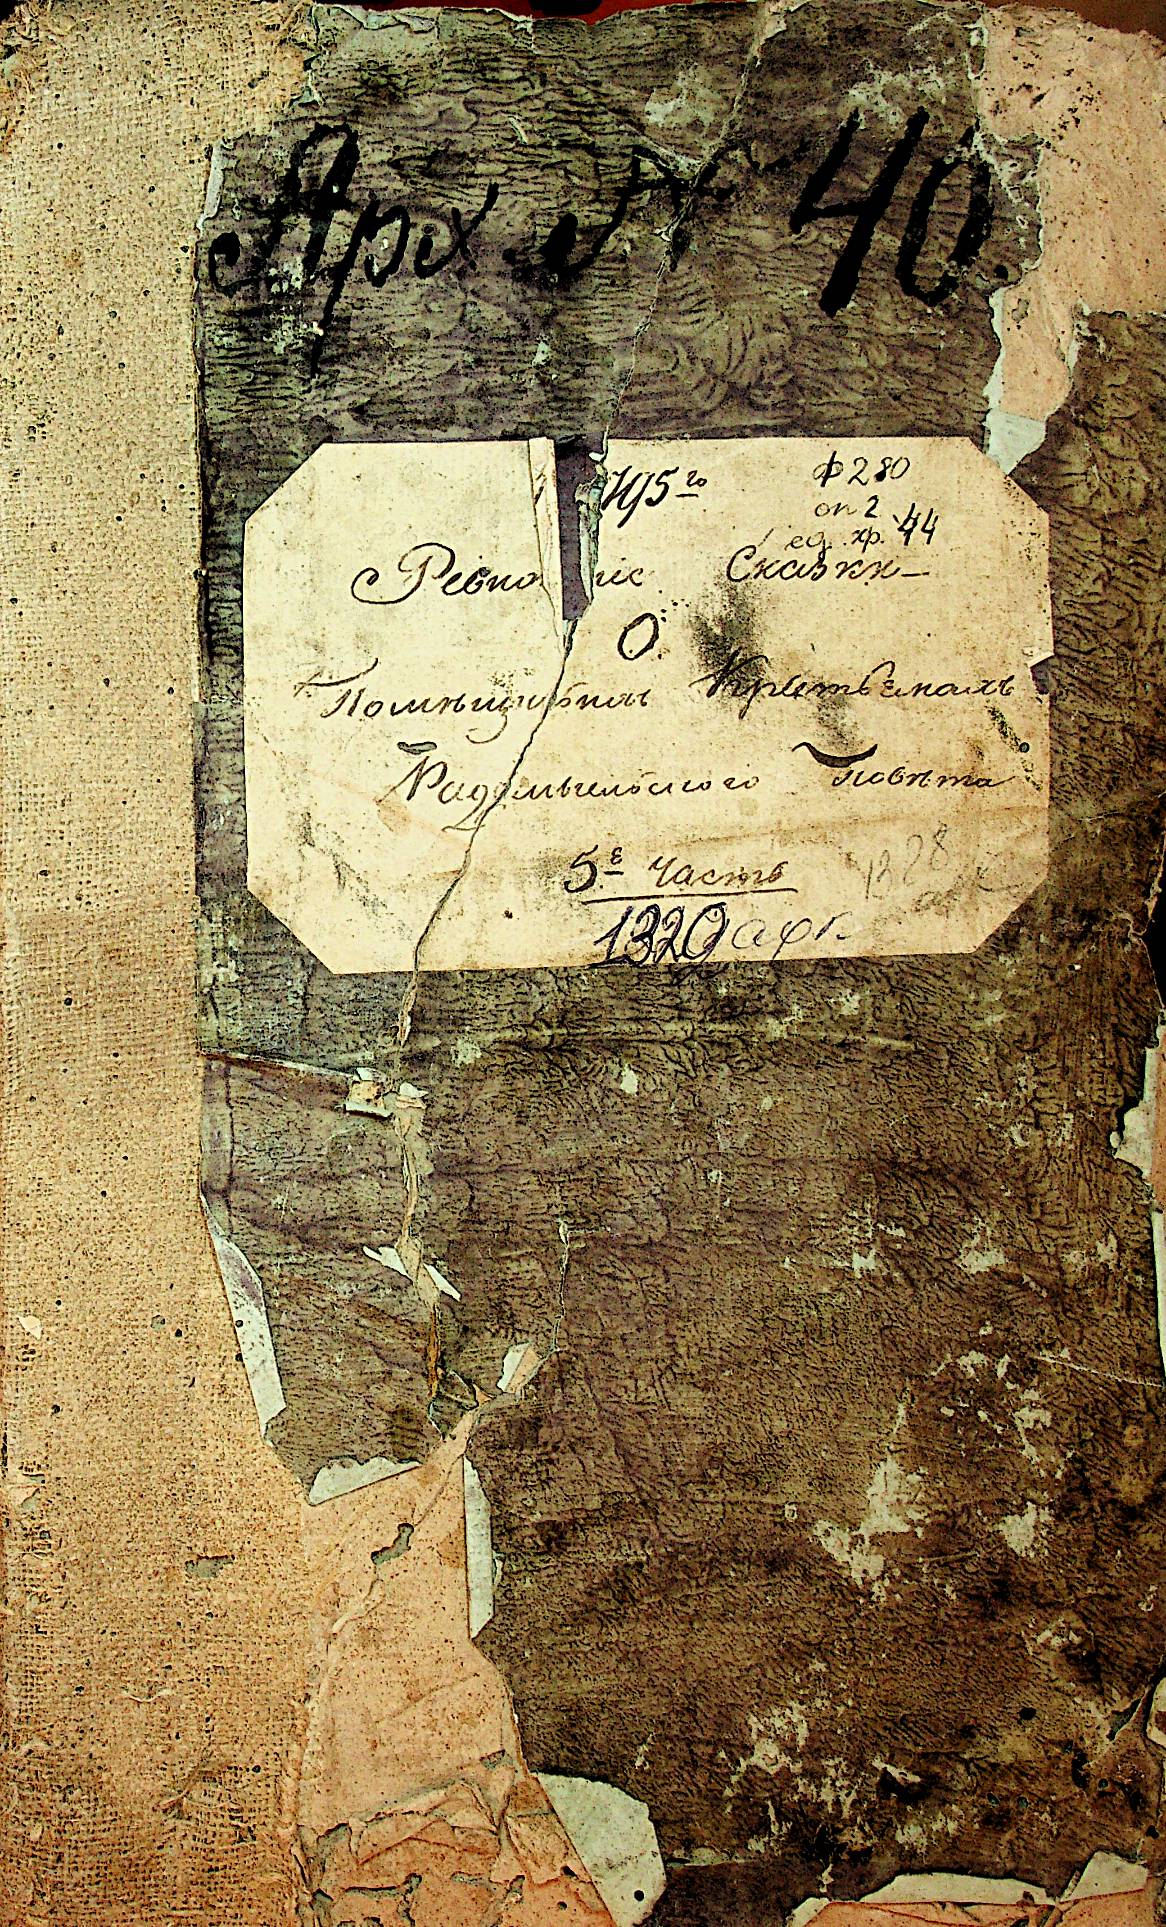 Арх. № 40
795го
ф 280
оп 2
ед. хр. 44
Ревизс ие Сказки
О
Помѣщичьихъ Крестьянахъ
Радомыслского Повѣта
5я часть
1328
1329 арк.